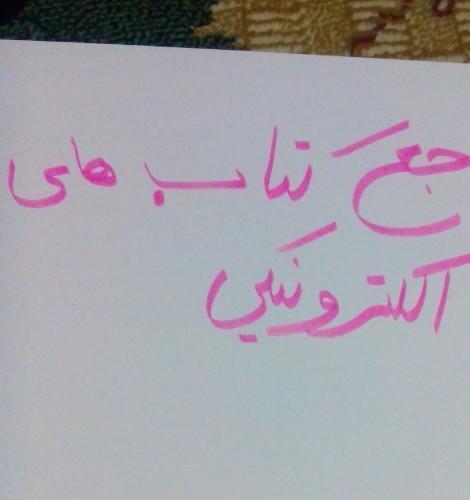 جع کتاب های
الکترونیکی